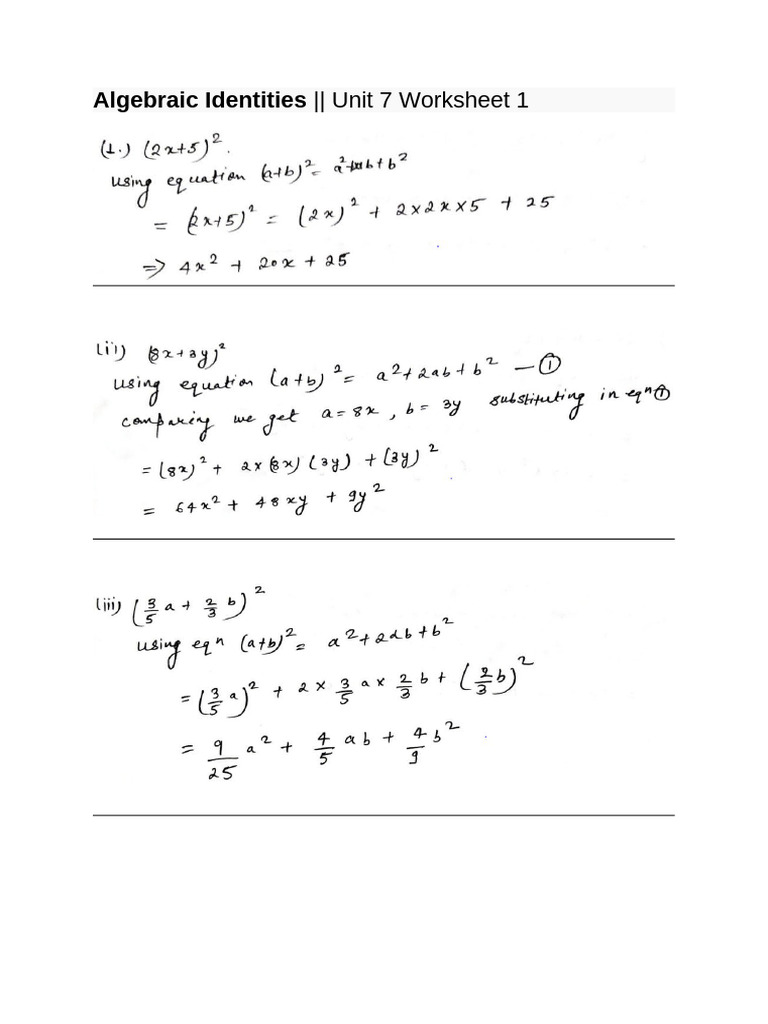 Algebraic Identities || Unit 7 Worksheet 1
(1.) (2x+5)².
using equation (a+b)² = a²+2ab+b²
= (2x+5)² = (2x)² + 2×2x×5 + 25
=> 4x² + 20x + 25
(ii) (8x+3y)²
using equation (a+b)² = a²+2ab+b² — ①
comparing we get a=8x, b=3y substituting in eqn①
= (8x)² + 2×(8x)(3y) + (3y)²
= 64x² + 48xy + 9y²
(iii) (3/5 a + 2/3 b)²
using eqn (a+b)² = a²+2ab+b²
= (3/5 a)² + 2 × 3/5 a × 2/3 b + (2/3 b)²
= 9/25 a² + 4/5 ab + 4/9 b²